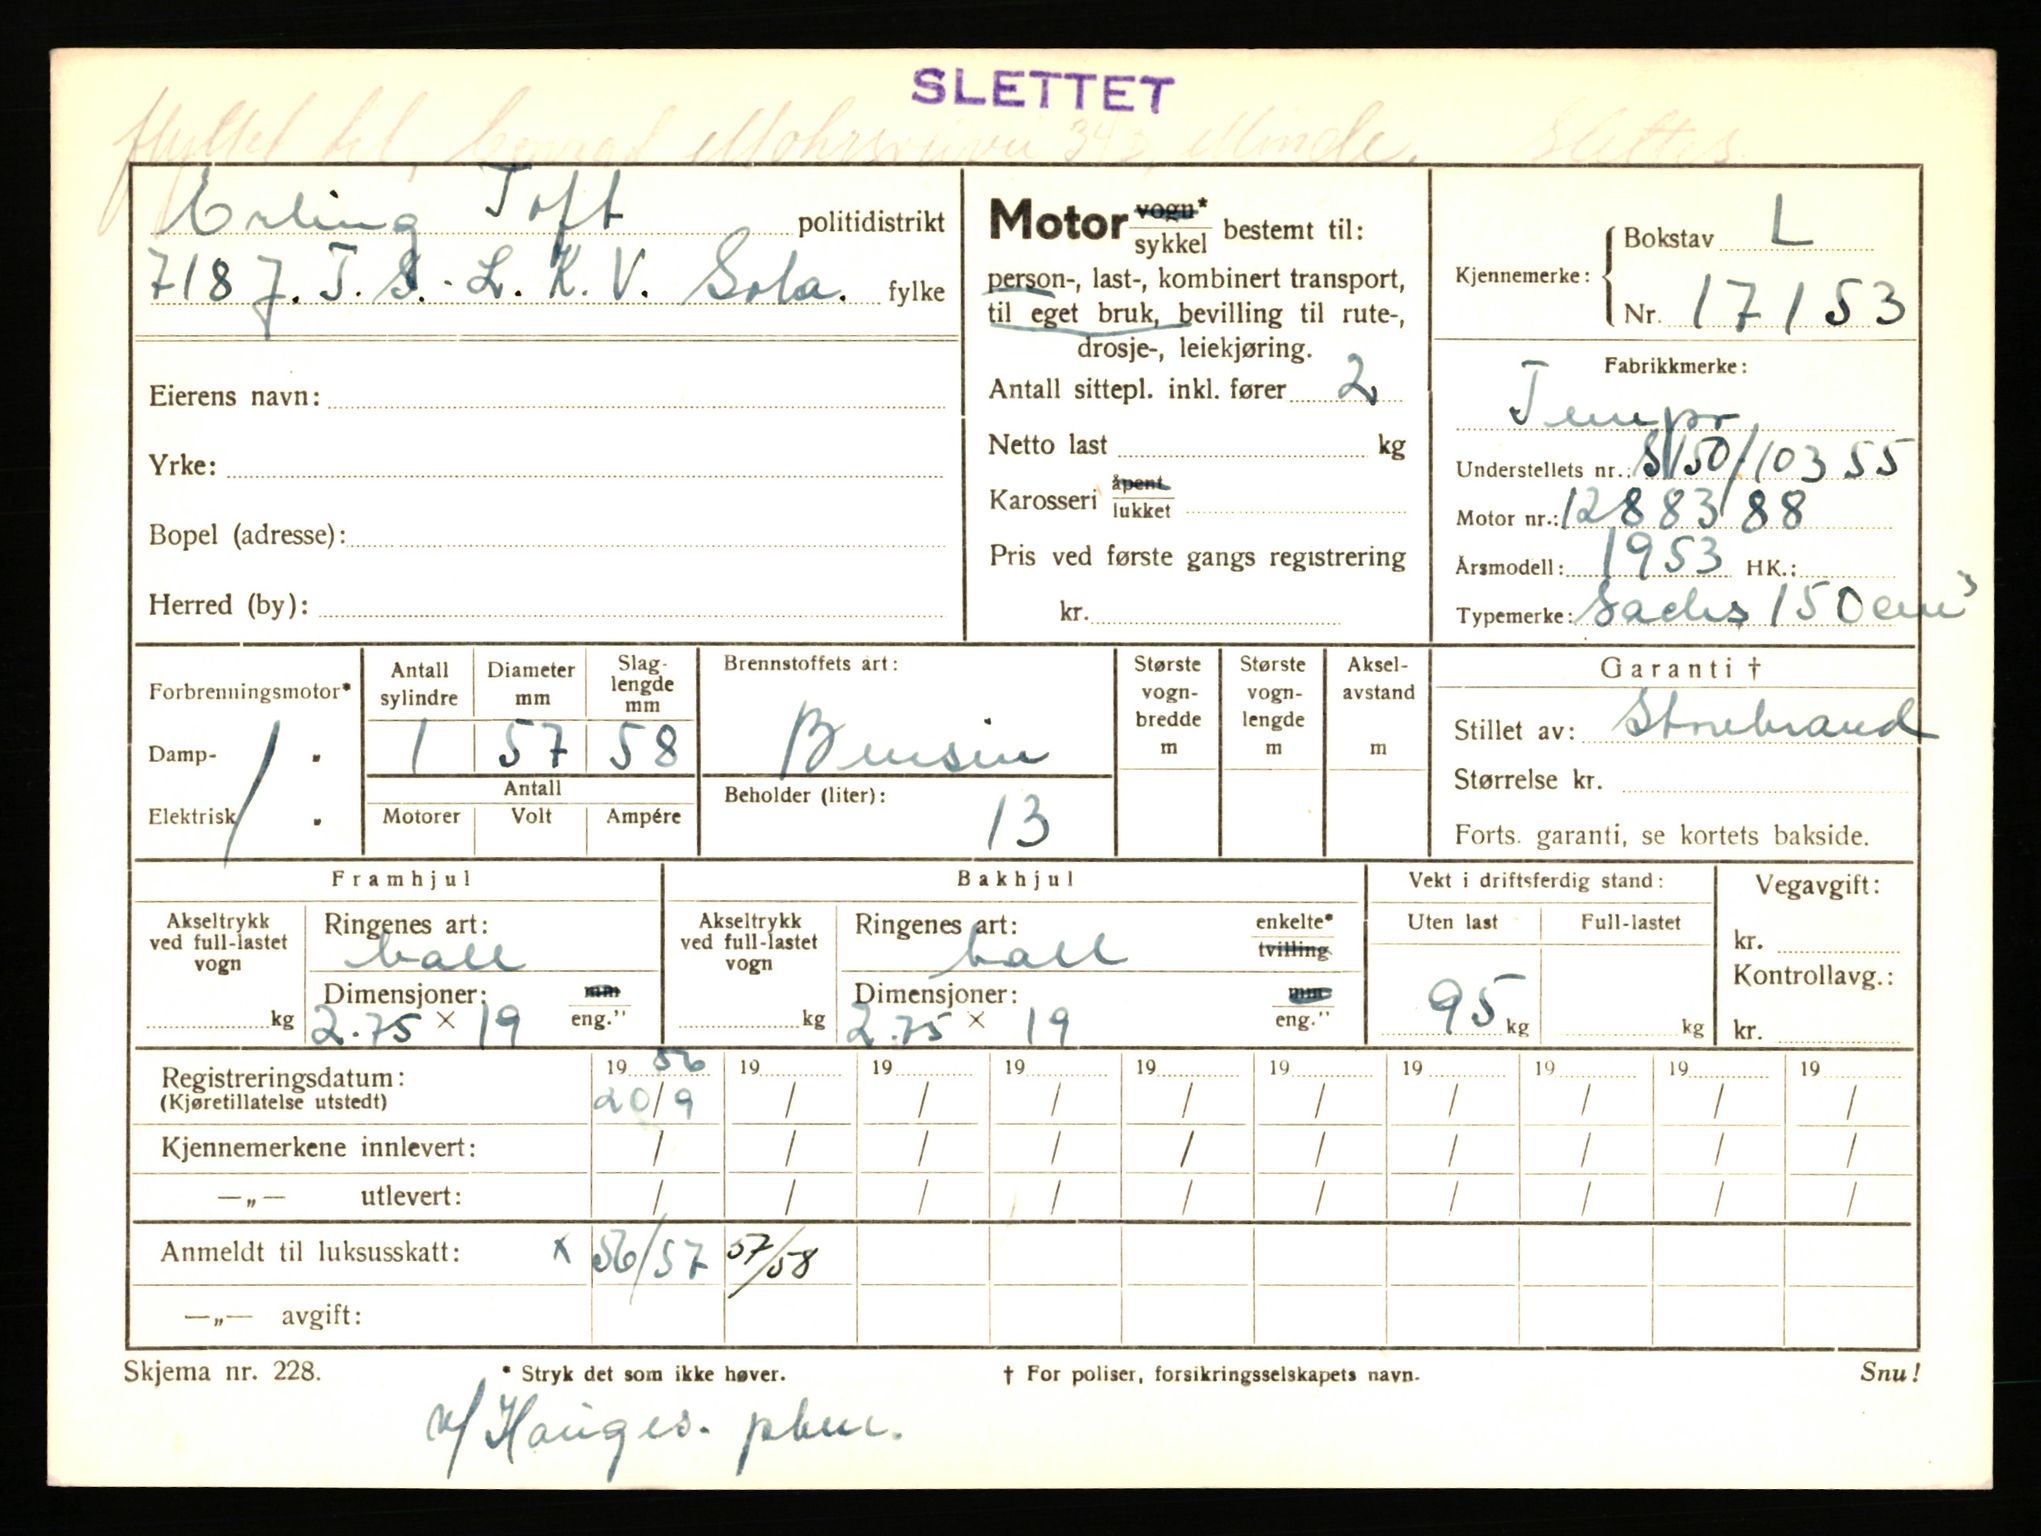 SLETTET
flyttet til Conrad Mohrsveien 34 Minde. Slettes
Erling Toft politidistrikt
7187 J. T. S. - L. K. V. Sola. fylke
Eierens navn:
Yrke:
Bopel (adresse):
Herred (by):
Motor vogn* sykkel bestemt til:
person-, last-, kombinert transport,
til eget bruk, bevilling til rute-,
drosje-, leiekjøring.
Antall sittepl. inkl. fører 2
Netto last kg
Karosseri åpent lukket
Pris ved første gangs registrering
kr.
Kjennemerke: Bokstav L
Nr. 17153
Fabrikkmerke:
Tempo
Understellets nr.: S150/10355
Motor nr.: 1288388
Årsmodell: 1953 HK.:
Typemerke: Sachs 150 cm³
Forbrenningsmotor*
Damp- "
Elektrisk "
Antall sylindre
Diameter mm
Slag-lengde mm
1 57 58
Antall
Motorer Volt Ampére
Brennstoffets art:
Bensin
Beholder (liter):
13
Største vogn-bredde m
Største vogn-lengde m
Aksel-avstand m
Garanti †
Stillet av: Storebrand
Størrelse kr.
Forts. garanti, se kortets bakside.
Framhjul
Akseltrykk ved full-lastet vogn
kg
Ringenes art:
ball
Dimensjoner: mm
2.75 × 19 eng."
Bakhjul
Akseltrykk ved full-lastet vogn
kg
Ringenes art: enkelte*
ball tvilling
Dimensjoner: mm
2.75 × 19 eng."
Vekt i driftsferdig stand:
Uten last Full-lastet
95 kg kg
Vegavgift:
kr.
Kontrollavg.:
kr.
Registreringsdatum: 19 56 19 19 19 19 19 19 19 19 19
(Kjøretillatelse utstedt) 20/9 / / / / / / / / /
Kjennemerkene innlevert: / / / / / / / / / /
—„— utlevert: / / / / / / / / / /
Anmeldt til luksusskatt: x 56/57 57/58
—„— avgift:
Skjema nr. 228. * Stryk det som ikke høver. † For poliser, forsikringsselskapets navn. Snu!
v/ Hauges.